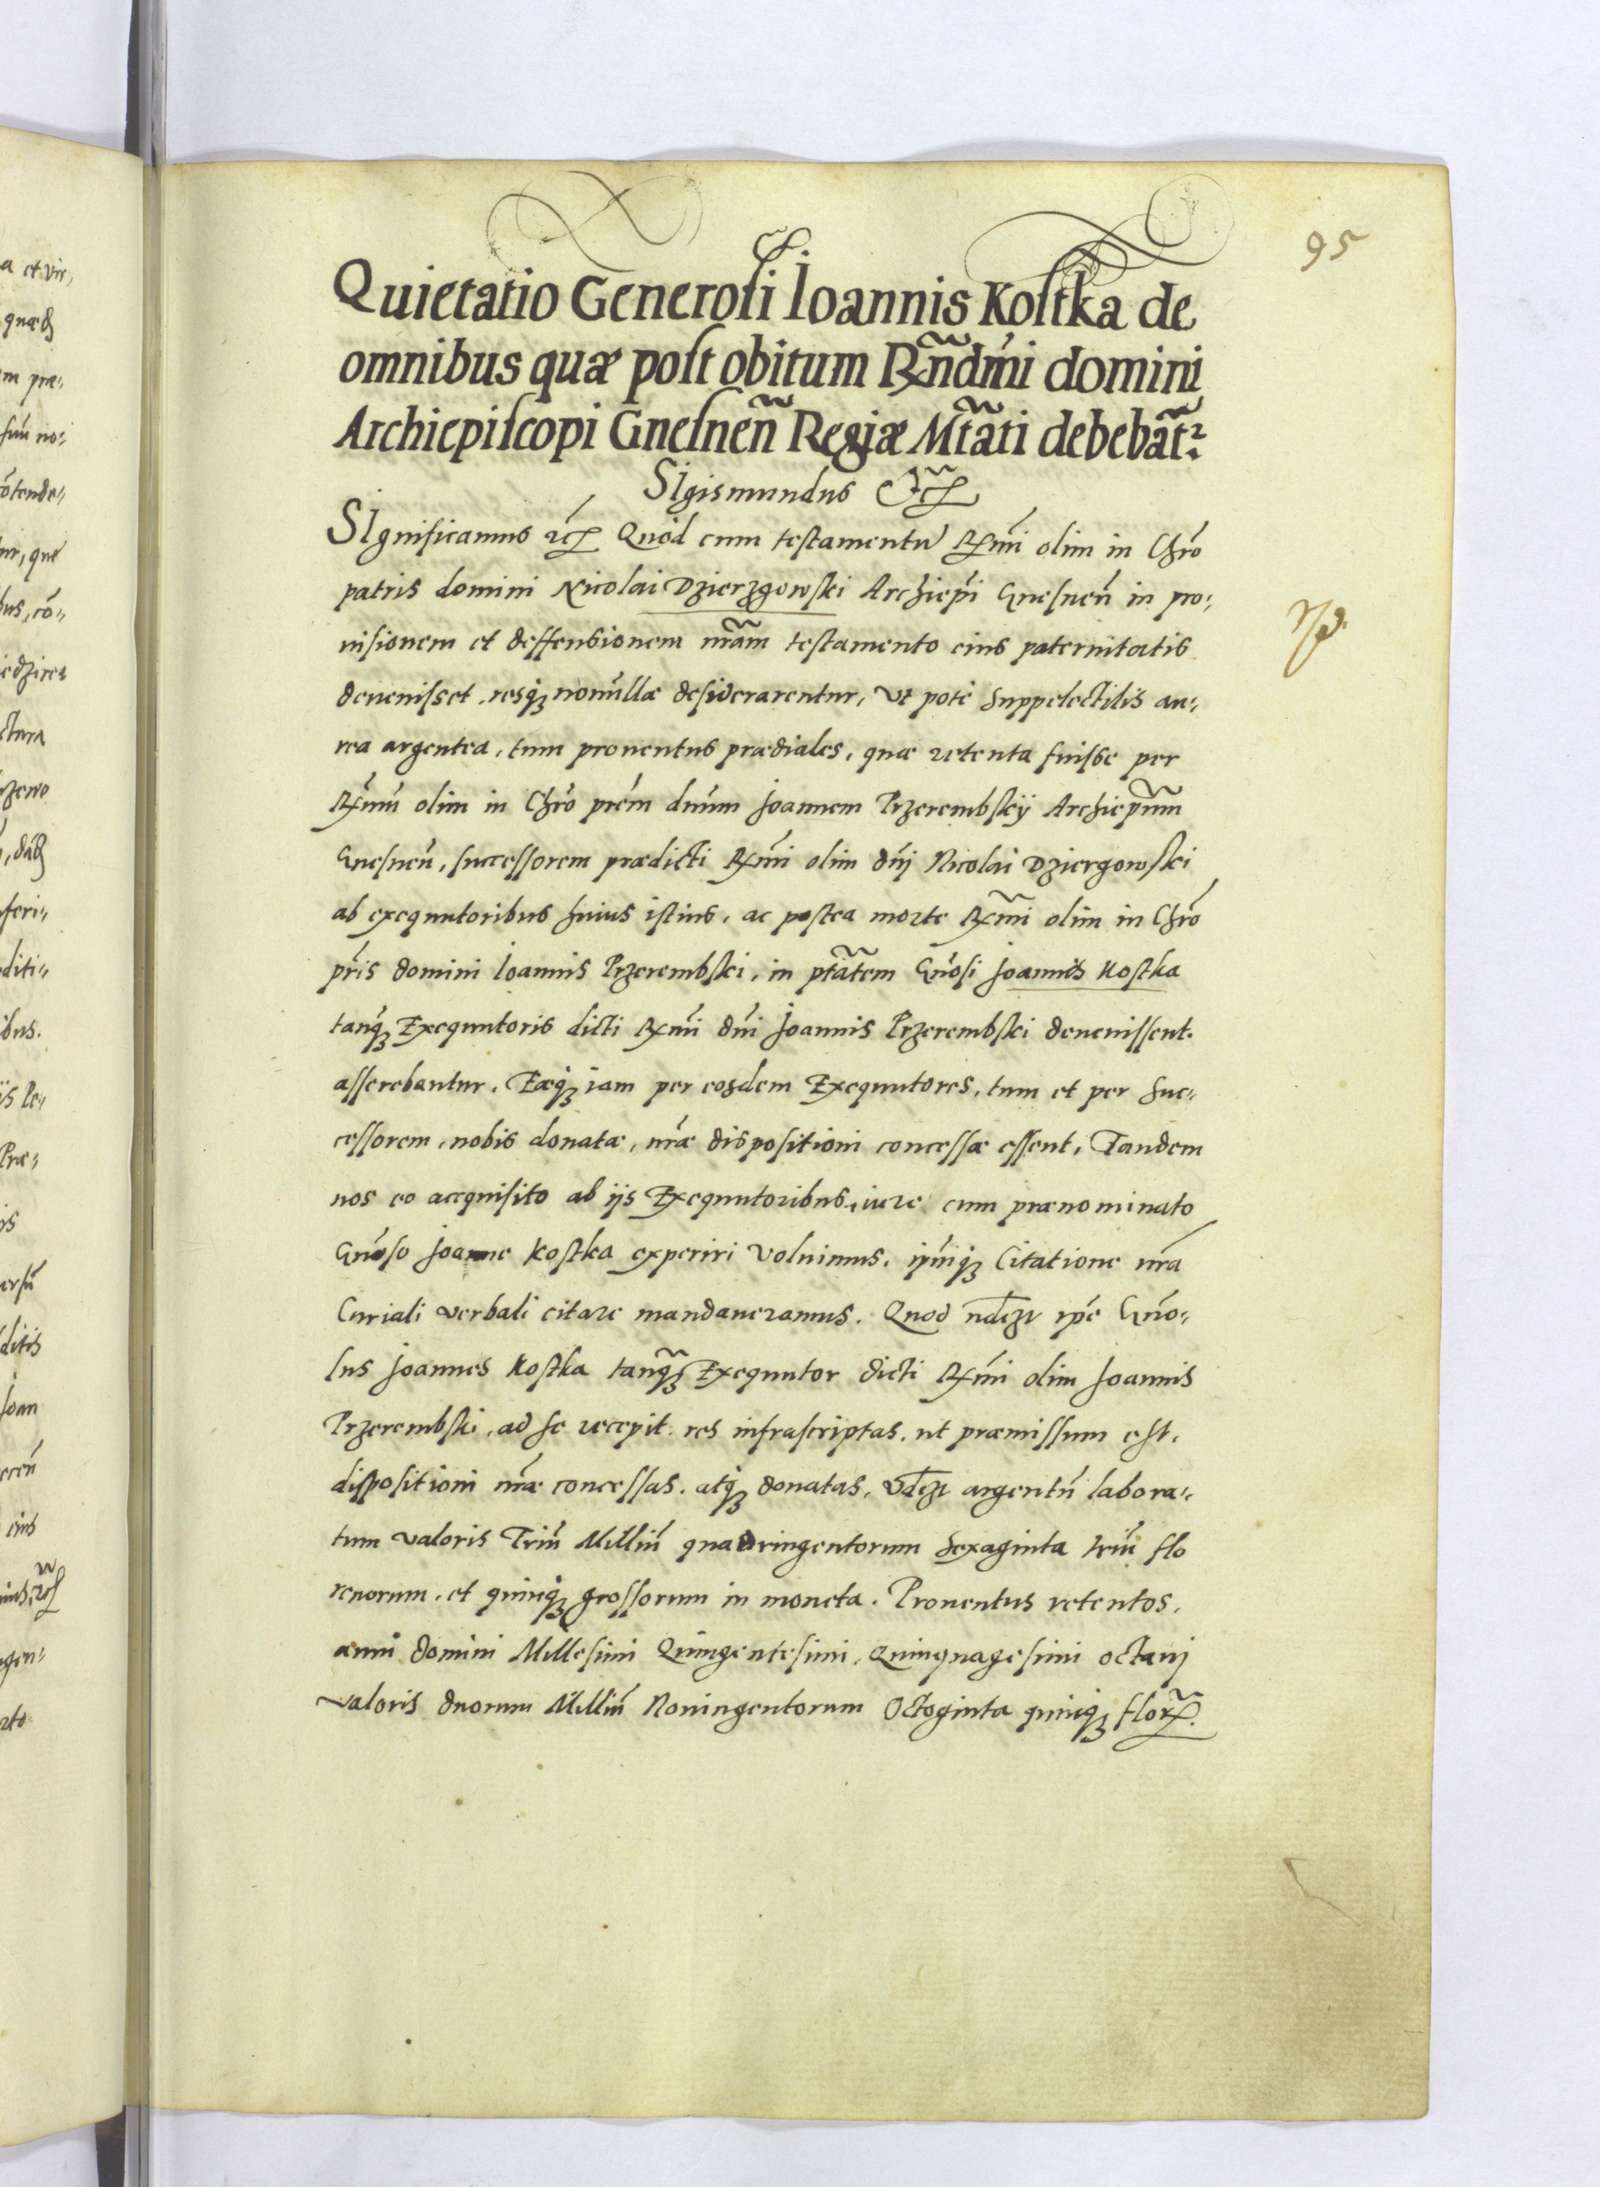 95
Quietatio Generosi Ioannis Kostka de
omnibus quæ post obitum Rñdm̃i domini
Archiepiscopi Gnesneñ Regiæ Mtãti debebãtr.
Sigismundus Etc
Significamus etc Quòd cum testamentũ Rm̃i olim in Chro
patris domini Nicolai Dzierzgowski Archiepi Gnesneñ in pro-
uisionem et deffensionem nr̃am testamento eius paternitatis
deuenisset, resq nonnullæ desiderarentur, vt potè suppelectilis au-
rea argentea, tum prouentus prædiales, quæ retenta fuisse per
Rm̃ũ olim in Chro prem dnum Joannem Przerembskij Archiepum
Gnesneñ, successorem prædicti Rm̃i olim dnj Nicolai Dziergowski
ab exequutoribus huius istius, ac postea morte Rm̃i olim in Chro
pris domini Ioannis Przerembski, in ptãtem Gnosi Joannis Kostka
tanq Exequutoris dicti Rm̃i dni Joannis Przerembski deuenissent.
asserebantur. Eæq iam per eosdem Exequutores, tum et per suc-
cessorem, nobis donatæ, nræ dispositioni concessæ essent, Tandem
nos eo acquisito ab ijs Exequutoribus, iure cum prænominato
Gnoso Joanne Kostka experiri voluimus, ipmq Citatione nra
Curiali verbali citare mandaueramus. Quod ipse Gno-
sus Joannes Kostka tanq Exequutor dicti Rm̃i olim Joannis
Przerembski, ad se recepit res infrascriptas, ut præmissum est,
dispositioni nræ concessas, atq donatas, vdczt argentũ labora-
tum valoris Triũ Milliũ quadringentorum sexaginta triũ flo
renorum, et quinq grossorum in moneta. Prouentus retentos,
anni domini Millesimi Quingentesimi, Quinquagesimi octauj
valoris duorum Milliũ Noningentorum Octoginta quinq flor.